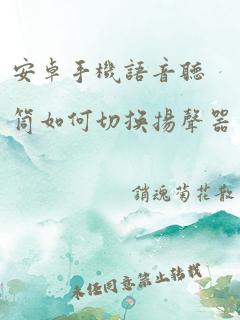 安卓手機語音聽
筒如何切换揚聲器
銷魂菊花散
未经同意禁止转载